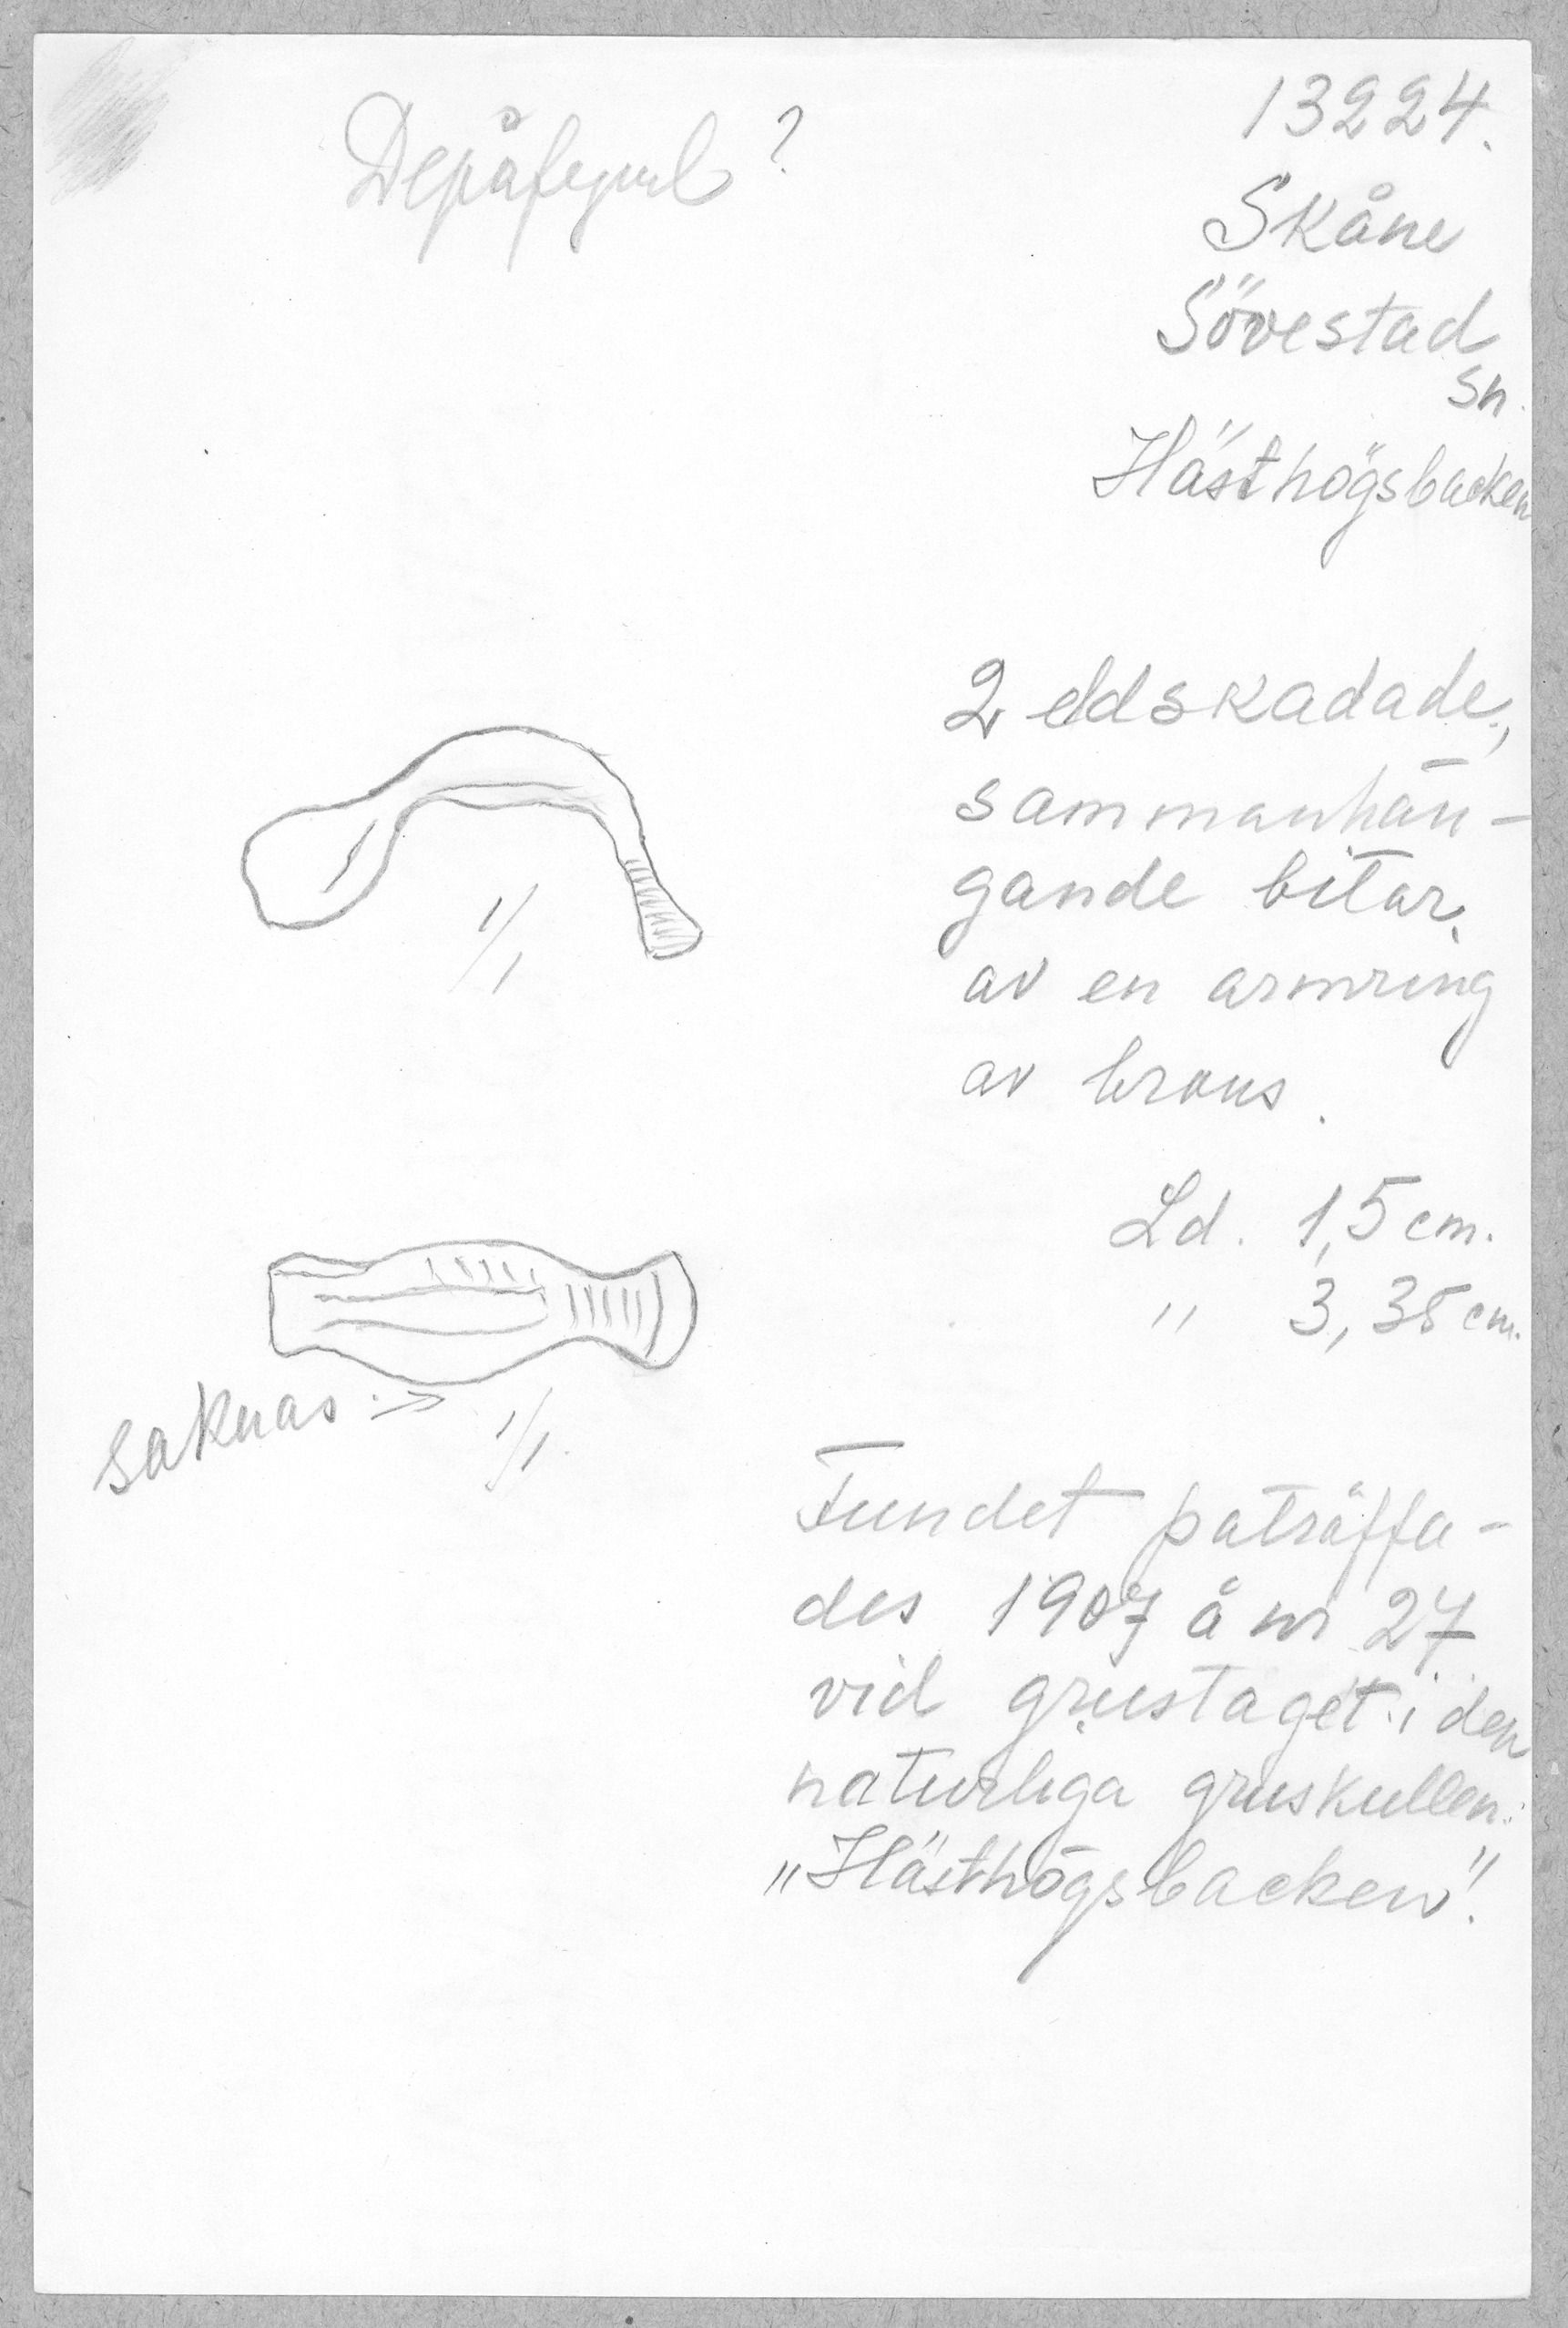 Depåfynd?
13224.
Skåne
Sövestad
sn.
Hästhögsbacken
2 eldskadade,
sammanhän-
gande bitar
av en armring
av brons.
1/1
Ld. 1,5 cm.
" 3,35 cm.
saknas →
1/1
Fundet påträffa-
des 1907 å nr 27
vid grustaget i den
naturliga gruskullen
"Hästhögsbacken".